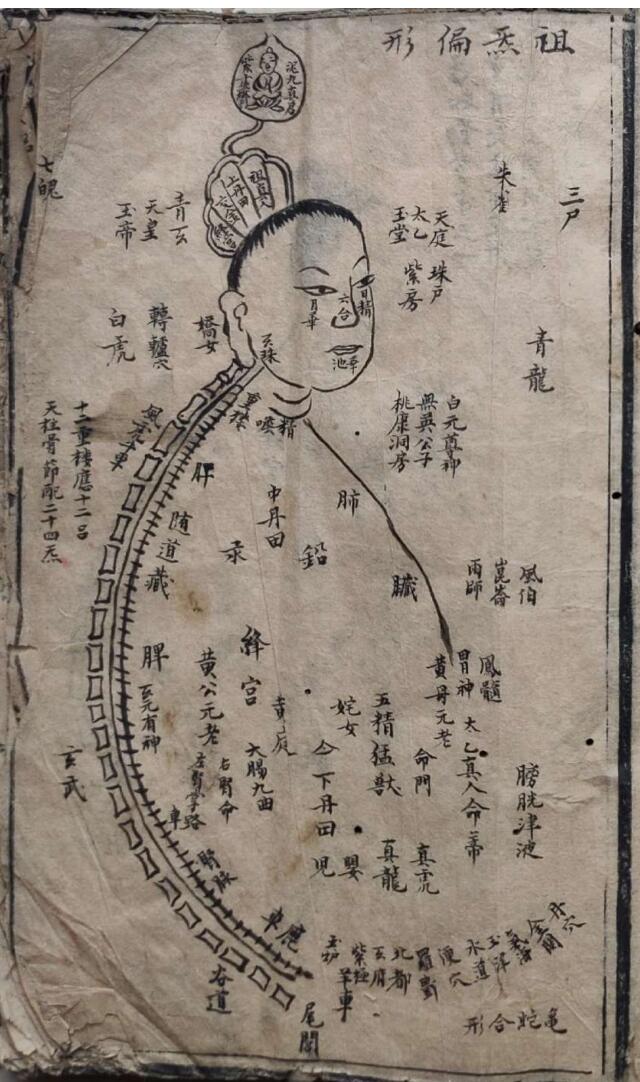 祖炁偏形
三尸
朱雀
青龍
泥丸真君
祖真穴
上丹田
七魄
青玄
天皇
玉帝
天庭
太乙
玉堂
珠戶
紫房
日精
月華
六台
華池
玄珠
橋女
轉轤穴
白虎
白元尊神
無英公子
桃康洞房
重樓
精
喉
十二重樓應十二呂
天柱骨節配二十四炁
肝
肺
中丹田
隨道藏
汞
鉛
臟
風伯
崑崙
雨師
脾
玄元有神
絳宮
黃公元老
黃庭
鳳髓
胃神
黃母元老
太乙真人命帝
命門
五精猛獸
姹女
下丹田
嬰
兒
大腸九曲
右腎命
玄武
真龍
真虎
膀胱津液
腎脉
車
鹿車
谷道
尾閭
羊車
紫極
北都
羅酆
水道
丹穴
龜蛇合形